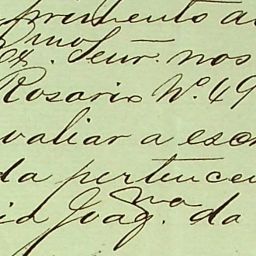 primento a
Ex.mo Senr. nos
Rosario Nº. 49
valiar a esc
da pertencen
ia Joaq.na da